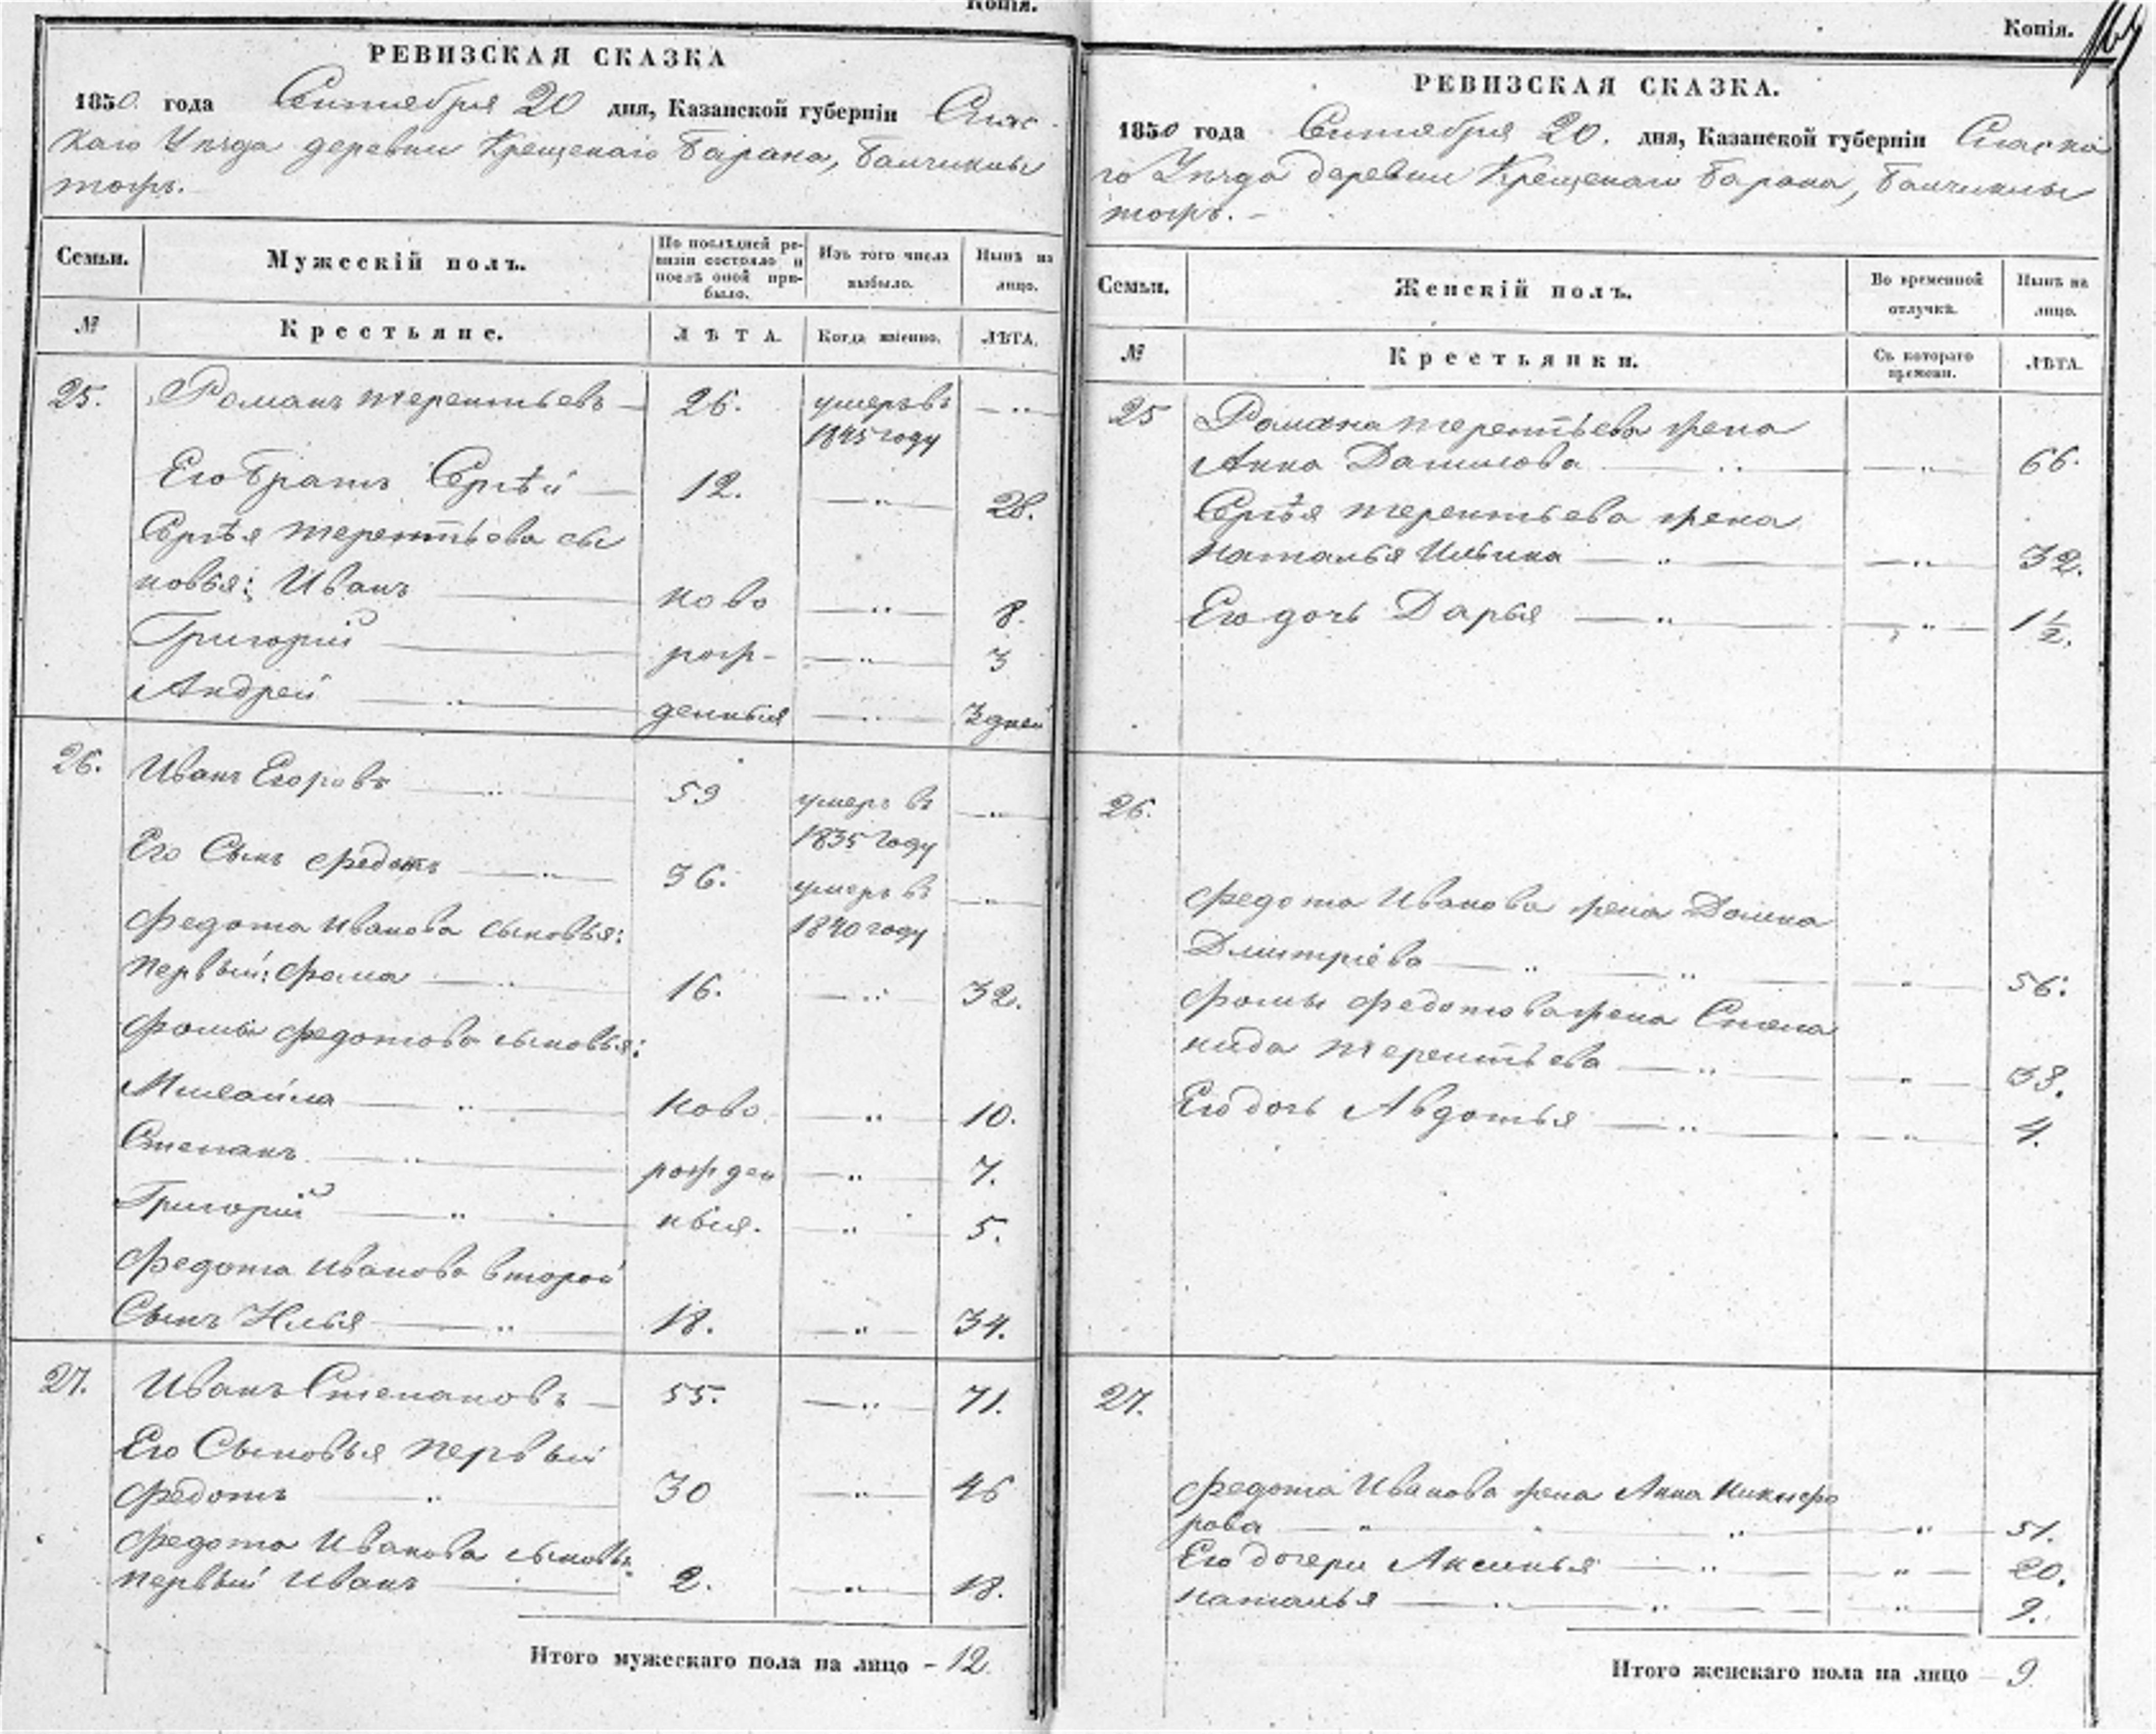 Копія.
РЕВИЗСКАЯ СКАЗКА
1850 года Сентября 20 дня, Казанской губерніи Спас-
каго Уѣзда деревни Крещенаго Барана,
тожъ.
Семьи. Мужескій полъ. По послѣдней ре-визіи состояло и послѣ оной при-было. Изъ того числа выбыло. Нынѣ на лицо.
№ Крестьяне. ЛѢТА. Когда именно. ЛѢТА.
25. Романъ Терентьевъ — 26. умеръ въ — „ —
1845 году
Его братъ Сергѣй — 12. — „ — 28.
Сергѣя Терентьева сы
новья: Иванъ — ново — „ — 8.
Григорій — рож- — „ — 3
Андрей — „ — денныя — „ — 3 дней
26. Иванъ Егоровъ — „ — 59 умеръ въ — „ —
1835 году
Его Сынъ Федотъ — „ — 36. умеръ въ — „ —
1840 году
Федота Иванова сыновья:
первый: Фома — „ — 16. — „ — 32.
Фомы Федотова сыновья:
Михайла — „ — ново — „ — 10.
Степанъ — „ — рожден — „ — 7.
Григорій — „ — ныя. — „ — 5.
Федота Иванова второй
Сынъ Илья — „ — 18. — „ — 34.
27. Иванъ Степановъ — 55. — „ — 71.
Его Сыновья первый
Федотъ — „ — 30 — „ — 46
Федота Иванова сыновья
первый Иванъ — 2. — „ — 18.
Итого мужескаго пола на лицо - 12.
Копія.
РЕВИЗСКАЯ СКАЗКА.
1850 года Сентября 20. дня, Казанской губерніи Спаска
го Уѣзда деревни Крещенаго Барана,
тожъ. -
Семьи. Женскій полъ. Во временной отлучкѣ. Нынѣ на лицо.
№ Крестьянки. Съ котораго времени. ЛѢТА.
25 Романа Терентьева жена
Анна Данилова — „ — „ — 66.
Сергѣя Терентьева жена
Наталья Ильина — „ — „ — 32.
Его дочь Дарья — „ — „ — 1 1/2.
26.
Федота Иванова жена Домна
Дмитріева — „ — „ — „ — 56.
Фомы Федотова жена Степа
нида Терентьева — „ — „ — 38.
Его дочь Авдотья — „ — „ — 4.
27.
Федота Иванова жена Анна Никифо
рова — „ — „ — „ — 51.
Его дочери Аксинья — „ — „ — 20.
Наталья — „ — „ — „ — 9.
Итого женскаго пола на лицо - 9